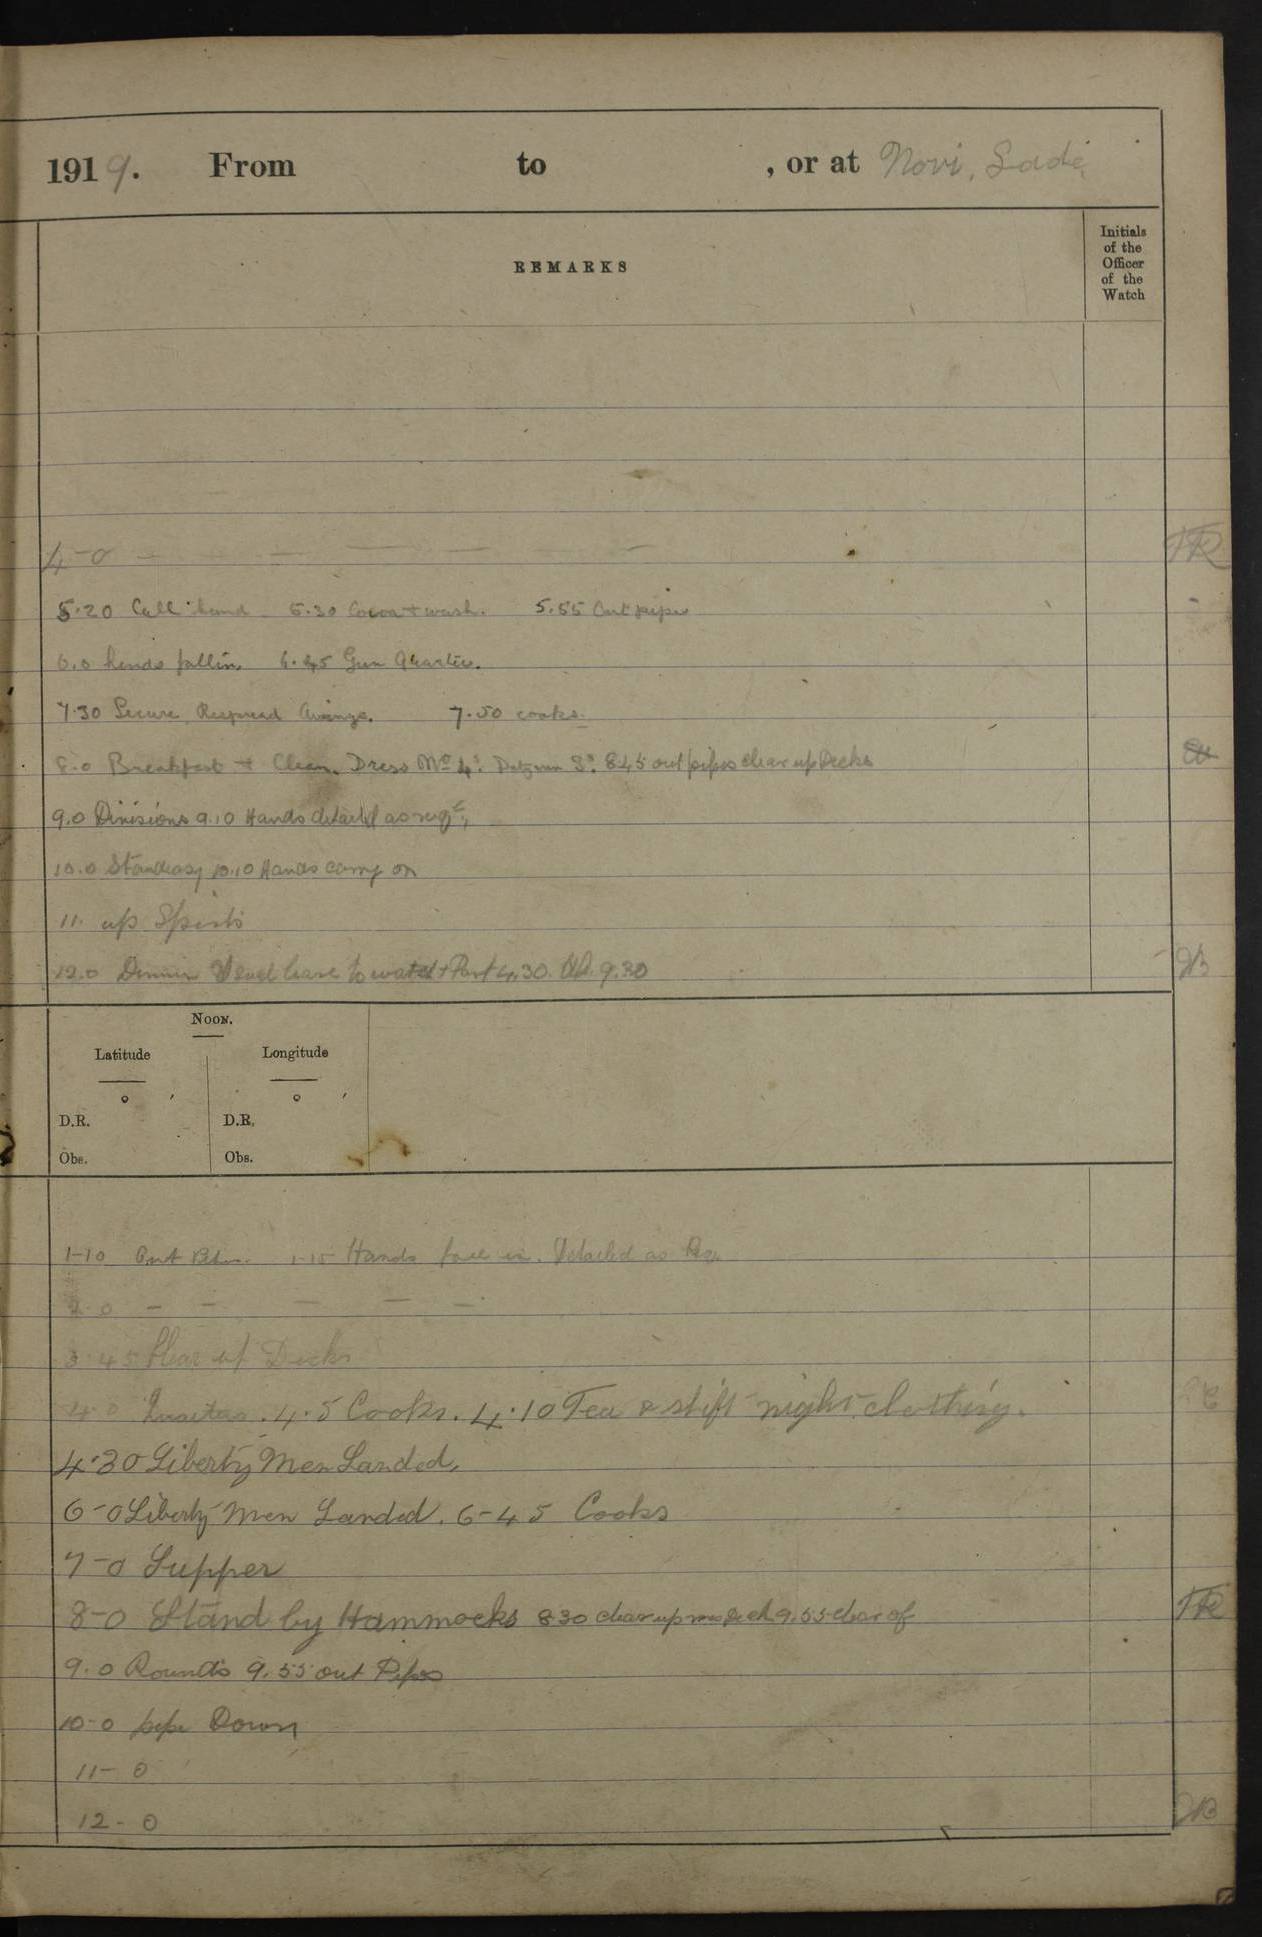 1919. From to , or at Novi, Sade
REMARKS
Initials of the Officer of the Watch
4-0 — — — — —
5.20 Call hand 5.30 Cocoa + wash. 5.55 Out pipes
6.0 hands fallin. 6.45 Gun Quarters.
7.30 Secure, Respread Awnings. 7.50 cooks.
8.0 Breakfast + Clean. Dress No 4s. 8.45 out pipes clear up Decks
9.0 Divisions 9.10 Hands detailed as reqd,
10.0 Standeasy 10.10 Hands carry on
11. up Spirits
12.0 Dinner Usual leave to watch + Part 4.30. 9.30
NOON.
Latitude Longitude
° ′ ° ′
D.R. D.R.
Obs. Obs.
1-10 Out 1-15 Hands fall in. Detailed as Req.
2.0 — — — — —
3.45 Clear up Decks
4.0 Quarters. 4.5 Cooks. 4.10 Tea & shift night clothing.
4.30 Liberty Men Landed.
6-0 Liberty men Landed. 6-45 Cooks
7-0 Supper
8-0 Stand by Hammocks 830 clear up mess deck 9.55 clear of
9.0 Rounds 9.55 out Pipes
10-0 pipe Down
11-0
12-0